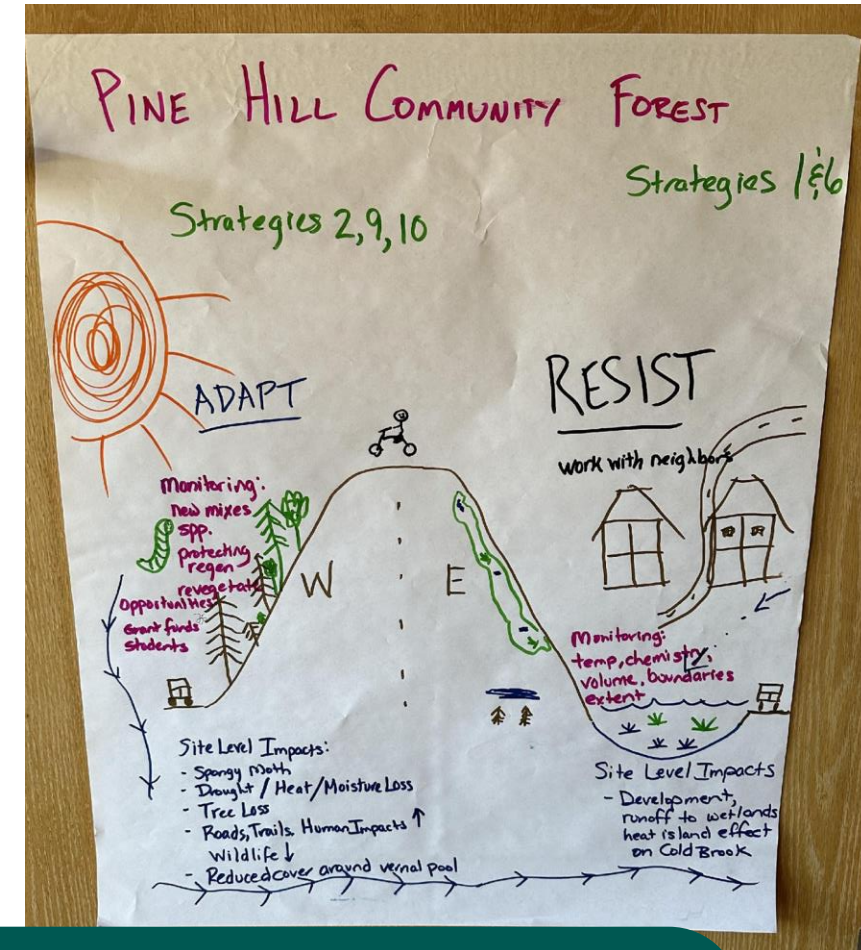 PINE HILL COMMUNITY FOREST
Strategies 1 & 6
Strategies 2, 9, 10
ADAPT
RESIST
work with neighbors
Monitoring:
new mixes
spp.
protecting
regen
revegetate
Opportunities
Grant funds
Students
W
E
Monitoring:
temp, chemistry,
volume, boundaries
extent
Site Level Impacts:
- Spongy Moth
- Drought / Heat/Moisture Loss
- Tree Loss
- Roads, Trails, Human Impacts ↑
Wildlife ↓
- Reduced cover around vernal pool
Site Level Impacts
- Development,
runoff to wetlands
heat island effect
on Cold Brook